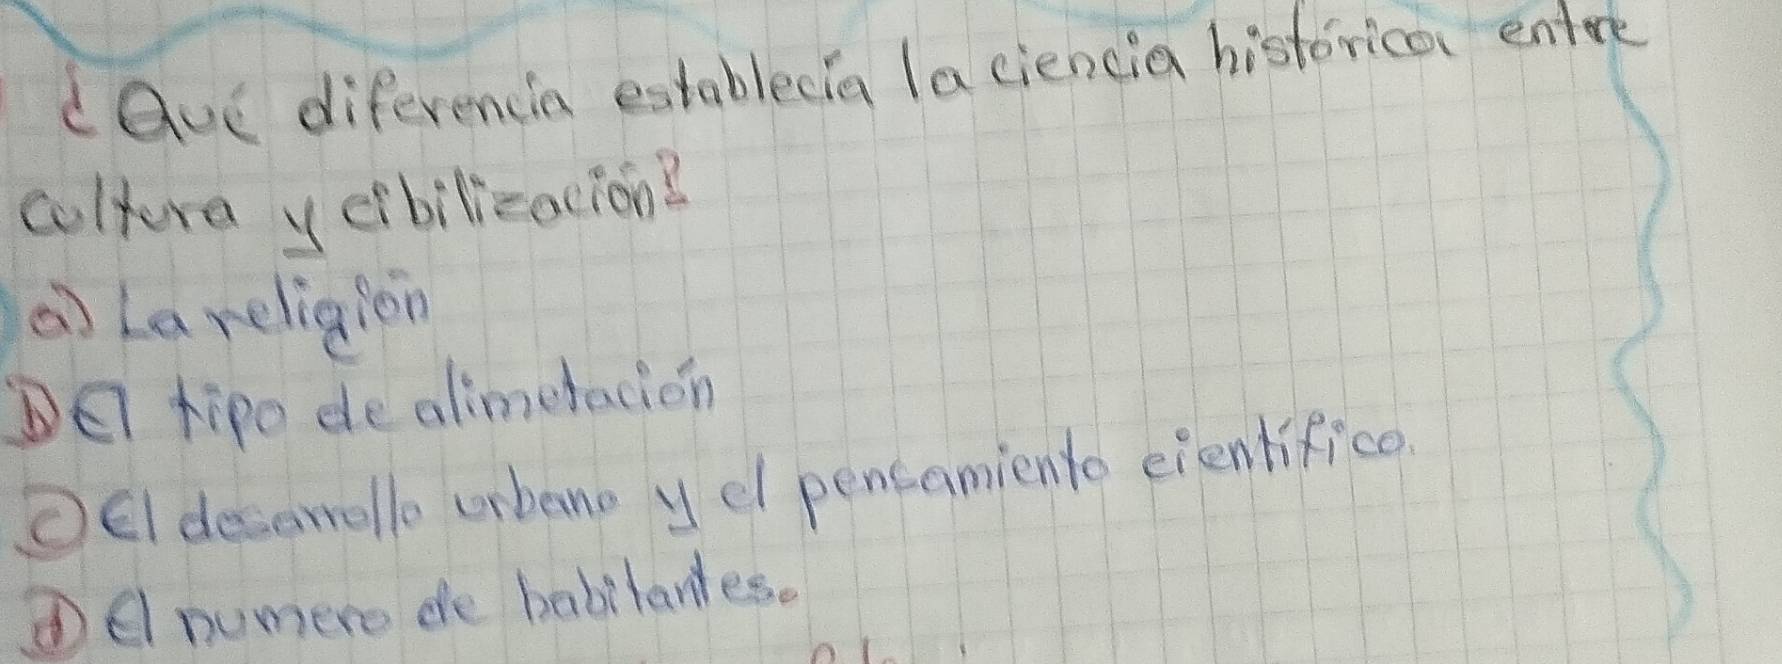 ¿Qué diferencia establecía la ciencia histórica entre
cultura y cibilización?
a) La religión
b) El tipo de alimetación
c) El desarrollo urbano y el pensamiento cientifico.
d) El numero de habitantes.